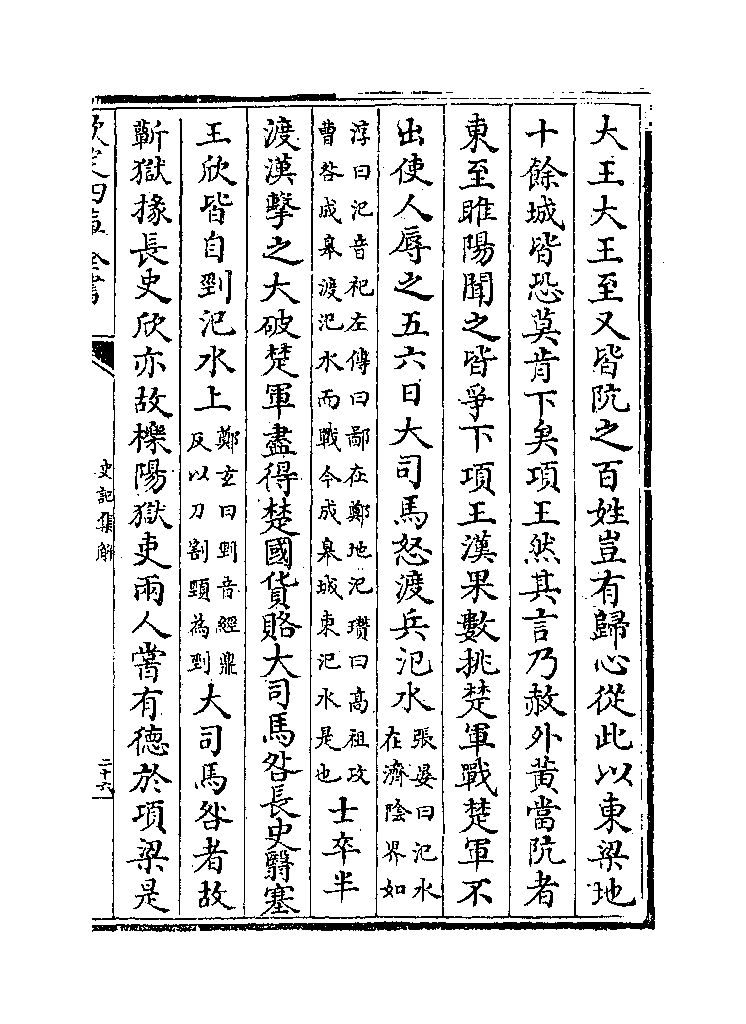 大王大王至又皆阬之百姓豈有歸心從此以東梁地
十餘城皆恐莫肯下矣項王然其言乃赦外黄當阬者
東至睢陽聞之皆爭下項王漢果數挑楚軍戰楚軍不
出使人辱之五六日大司馬怒渡兵汜水張晏曰汜水在濟陰界如
淳曰汜音祀左傳曰鄙在鄭地汜瓚曰高祖攻曹咎成皋渡汜水而戰今成皋城東汜水是也士卒半
渡漢擊之大破楚軍盡得楚國貨賂大司馬咎長史翳塞
王欣皆自剄汜水上鄭玄曰剄音經鼎反以刀割頸為剄大司馬咎者故
蘄獄掾長史欣亦故櫟陽獄吏兩人嘗有德於項梁是
欽定四庫全書
史記集解
二十六